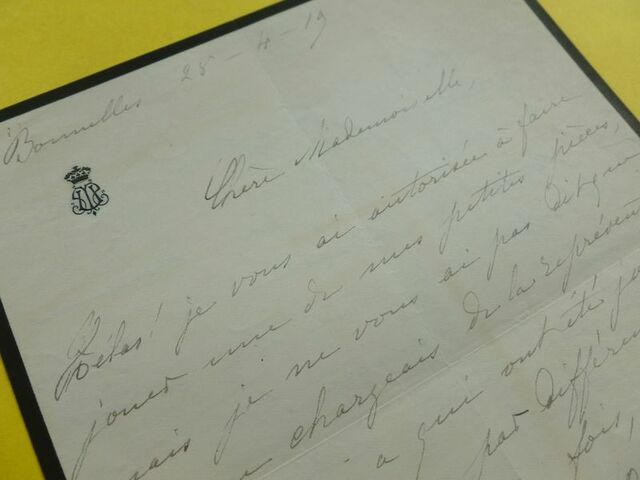 Bonnelles 25-4-19
Chère Mademoiselle,
Hélas! je vous ai autorisée à faire
jouer une de mes petites pièces,
mais je ne vous ai pas dit que
chargeais de la représent
a qui ont été
par différen
fois,